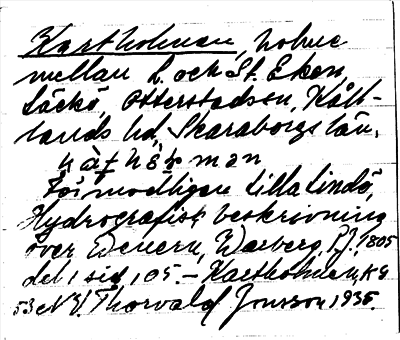 Kartholmen, holme
mellan L. och St. Eken,
Läckö, Otterstadsen, Kåll-
lands hd, Skaraborgs län,
Förmodligen Lilla Lindö,
Hydrografisk beskrivning
över Wenern, Warberg, P.J. 1805
del 1 sid, 105. – Kartholmen, KG
53 c NV. Thorvald Jonsson, 1935.